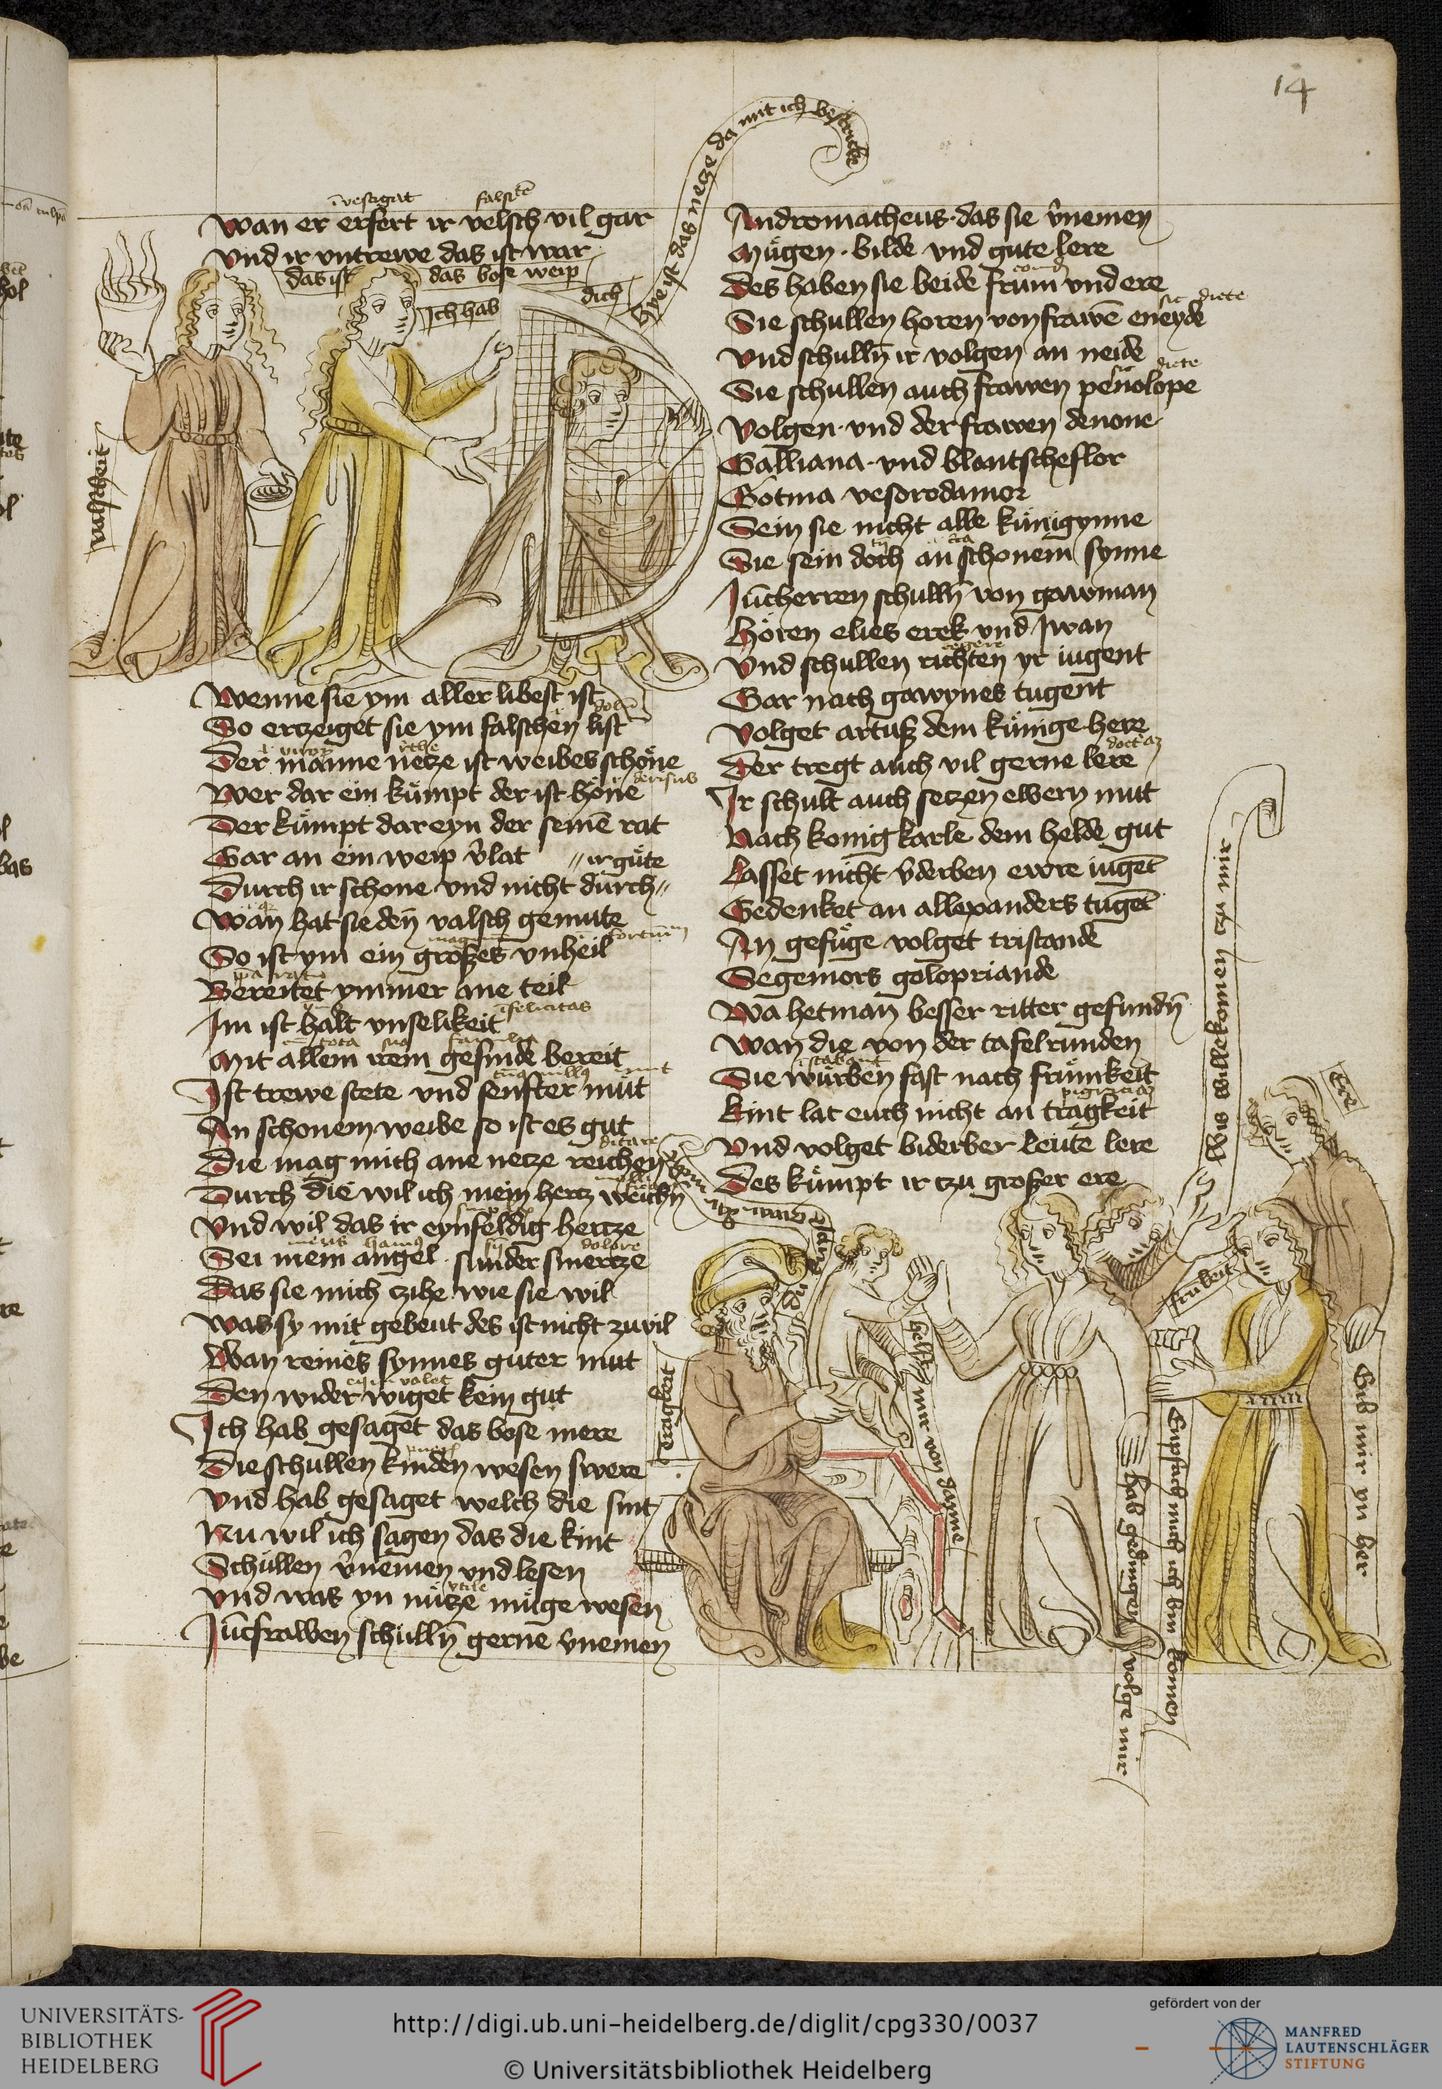 14
da mit ich bestricke
hye ist das netze
Wan er erfert ir velsch vil gar
Vnd ir vntrewe das ist war
das ist das bose weip
Ich hab dich
valscheit
Wenne sie ym aller libest ist
So erczeiget sie ym falschen list
Der manne netze ist weibes schone
Wer dar ein kumpt der ist hone
Der kumpt dar eyn der seinē rat
Gar an ein weip v̄lat
// ir gute
Durch ir schone vnd nicht durch //
Wan hat sie den valsch gemute
So ist ym ein großes vnheil
Bereitet ymmer ane teil
Im ist halt vnselikeit
Mit allem irem gesinde bereit
Ist trewe stete vnd senfter mut
An schonem weibe so ist es gut
Die mag mich ane netze reichen
Durch die wil ich mein hertz weickn̄
Vnd wil das ir eynfeldig hertze
Sei mein angel sunder smertze
Das sie mich czihe wie sie wil
Was sy mir gebeut des ist nicht zuvil
Wan reines synnes guter mut
Den wider wiget kein gut
Ich hab gesaget das bose mere
Die schullen kinden wesen swere
Vnd hab gesaget welch die sint
Nu wil ich sagen das die kint
Schullen v̄nemen vnd lesen
Vnd was yn nutze muge wesen
Jūcfrawen schulln̄ gerne v̄nemen
Andromacheus das sie v̄nemen
Mugen bilde vnd gute lere
Des haben sie beide frum vnd ere
Sie schullen horen von frawē eneyde
Vnd schulln̄ ir volgen an neide
Sie schullen auch frawen penolope
Volgen vnd der frawen denone
Galliana vnd blantscheflor
Botina vesorodamor
Sein sie nicht alle kunigynne
Sie sein doch an schonem synne
Jūcherren schulln̄ von gawman
Horen elies erek vnd Iwan
Vnd schullen richten yr iugent
Gar nach gawynes tugent
Volget artuß dem kunige here
Der tregt auch vil gerne lere
Ir schult auch setzen ewern mut
Nach konig karle dem helde gut
Lasset nicht v̄derben ewre iugēt
Gedenket an allexanders tugēt
An gefuge volget tristande
Segemors golopriande
Wa hetman besser ritter gefundn̄
Wan die von der tafelrunden
Sie wurben fast nach frumkeit
Kint lat euch nicht an tragkeit
Vnd volget biderber leute lere
Des kumpt ir czu großer ere
Wis willekomen czu mir
Ere
frumkeit
tragkeit
helft mir von danne
Gib mir yn her
Enpfach mich ich bin komen
volge mir
UNIVERSITÄTS-
BIBLIOTHEK
HEIDELBERG
http://digi.ub.uni-heidelberg.de/diglit/cpg330/0037
© Universitätsbibliothek Heidelberg
gefördert von der
MANFRED
LAUTENSCHLÄGER
STIFTUNG